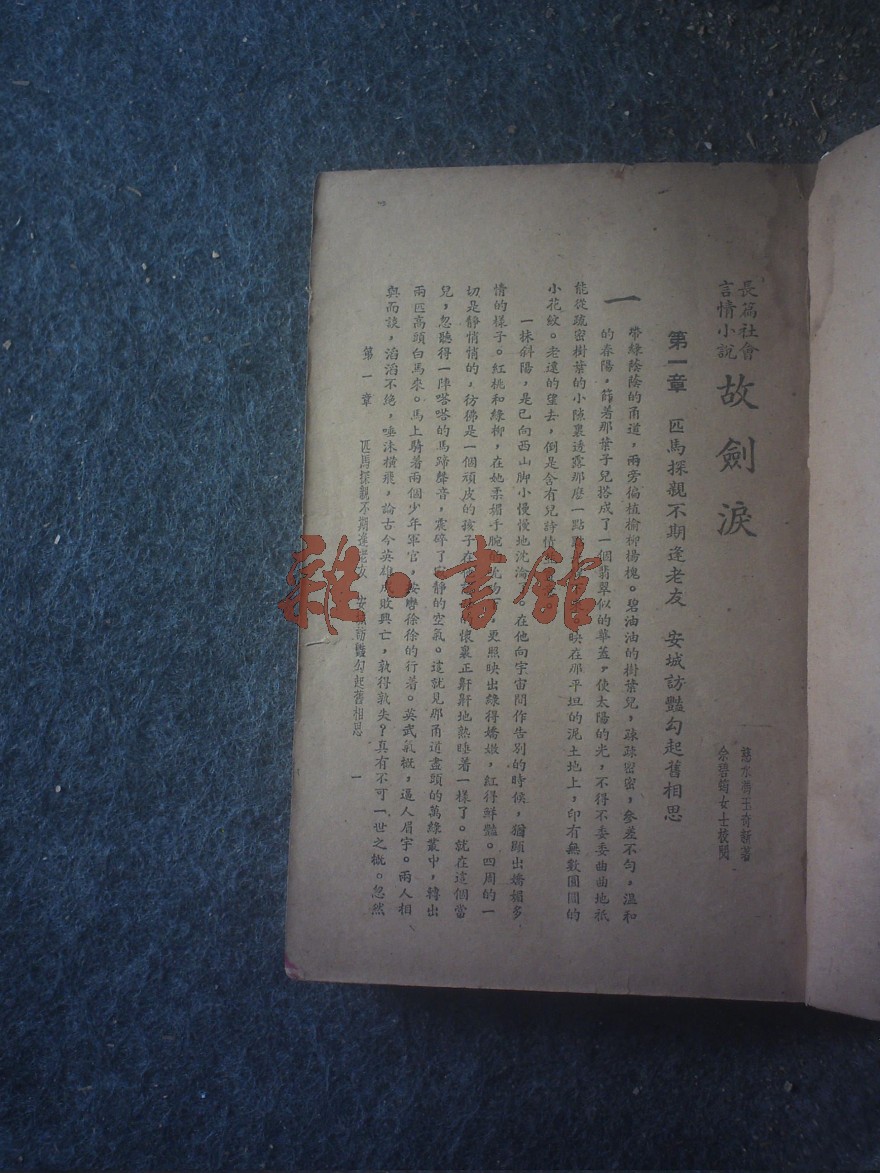 長篇社會
言情小說
故劍淚
慈水馮玉奇新著
余碧筠女士校閱
第一章 匹馬探親不期逢老友 安城訪豔勾起舊相思
一帶綠蔭蔭的甬道,兩旁偏植榆柳楊槐。碧油油的樹葉兒,疎疎密密,參差不勻,溫和
的春陽,篩着那葉子兒搭成了一個翡翠似的華蓋,使太陽的光,不得不委委曲曲地祇
能從疏密樹葉的小隙裏透露那麽一點點 映在那平坦的泥土地上,印有無數圓圓的
小花紋。老遠的望去,倒是含有兒詩情
一抹斜陽,是已向西山脚小慢慢地沈淪了。在他向宇宙間作告別的時候,猶顯出嬌媚多
情的樣子。紅桃和綠柳,在她柔媚手腕 更照映出綠得嬌嫩,紅得鮮豔。四周的一
切是靜悄悄的,彷彿是一個頑皮的孩子在 懷裏正鼾鼾地熟睡着一樣了。就在這個當
兒,忽聽得一陣嗒嗒的馬蹄聲音,震碎了寂靜的空氣。這就見那甬道盡頭的萬綠叢中,轉出
兩匹高頭白馬來。馬上騎着兩個少年軍官,按轡徐徐的行着。英武氣概,逼人眉宇。兩人相
與而談,滔滔不絕,唾沫橫飛,論古今英雄成敗興亡,孰得孰失?真有不可一世之概。忽然
第一章 匹馬探親不期逢老友 安城訪豔勾起舊相思 一
雜·書館